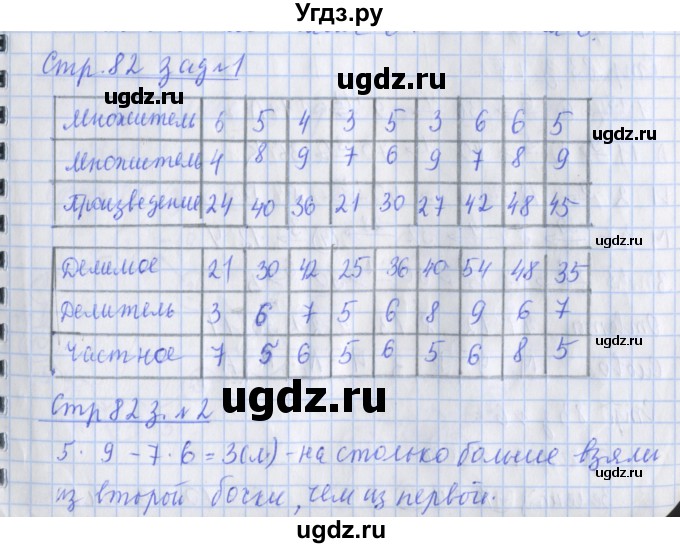 Угдз.ру
Стр. 82 зад №1
Множитель 6 5 4 3 5 3 6 6 5
Множитель 4 8 9 7 6 9 7 8 9
Произведение 24 40 36 21 30 27 42 48 45
Делимое 21 30 42 25 36 40 54 48 35
Делитель 3 6 7 5 6 8 9 6 7
Частное 7 5 6 5 6 5 6 8 5
Стр 82 з. №2
5 · 9 - 7 · 6 = 3(л) - на столько больше взяли
из второй бочки, чем из первой.
ugdz.ru
ugdz.ru
ugdz.ru
ugdz.ru
ugdz.ru
ugdz.ru
ugdz.ru
ugdz.ru
ugdz.ru
ugdz.ru
ugdz.ru
ugdz.ru
ugdz.ru